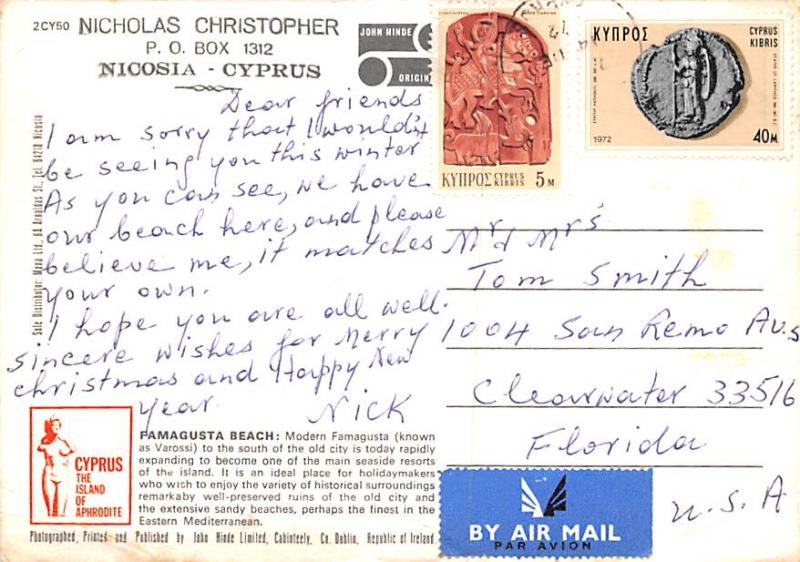 2CY50
NICHOLAS CHRISTOPHER
P. O. BOX 1312
NICOSIA - CYPRUS
JOHN HINDE
ORIGIN
Dear friends
I am sorry that I wouldn't
be seeing you this winter
As you can see, we have
our beach here, and please
believe me, it matches
your own.
I hope you are all well.
Sincere wishes for Merry
christmas and Happy New
year.
Nick
ΚΥΠΡΟΣ CYPRUS KIBRIS 5 M
ΚΥΠΡΟΣ
CYPRUS
KIBRIS
1972
40M
Mr & Mrs
Tom Smith
1004 San Remo Av.s
Clearwater 33516
Florida
U.S.A
BY AIR MAIL
PAR AVION
CYPRUS
THE
ISLAND
OF
APHRODITE
FAMAGUSTA BEACH: Modern Famagusta (known
as Varossi) to the south of the old city is today rapidly
expanding to become one of the main seaside resorts
of the island. It is an ideal place for holidaymakers
who wish to enjoy the variety of historical surroundings
remarkaby well-preserved ruins of the old city and
the extensive sandy beaches, perhaps the finest in the
Eastern Mediterranean.
Photographed, Printed and Published by John Hinde Limited, Cabinteely, Co. Dublin, Republic of Ireland
Sole Distributor: Mana Ltd., 6A Arnaldas St., Tel. 64210 Nicosia